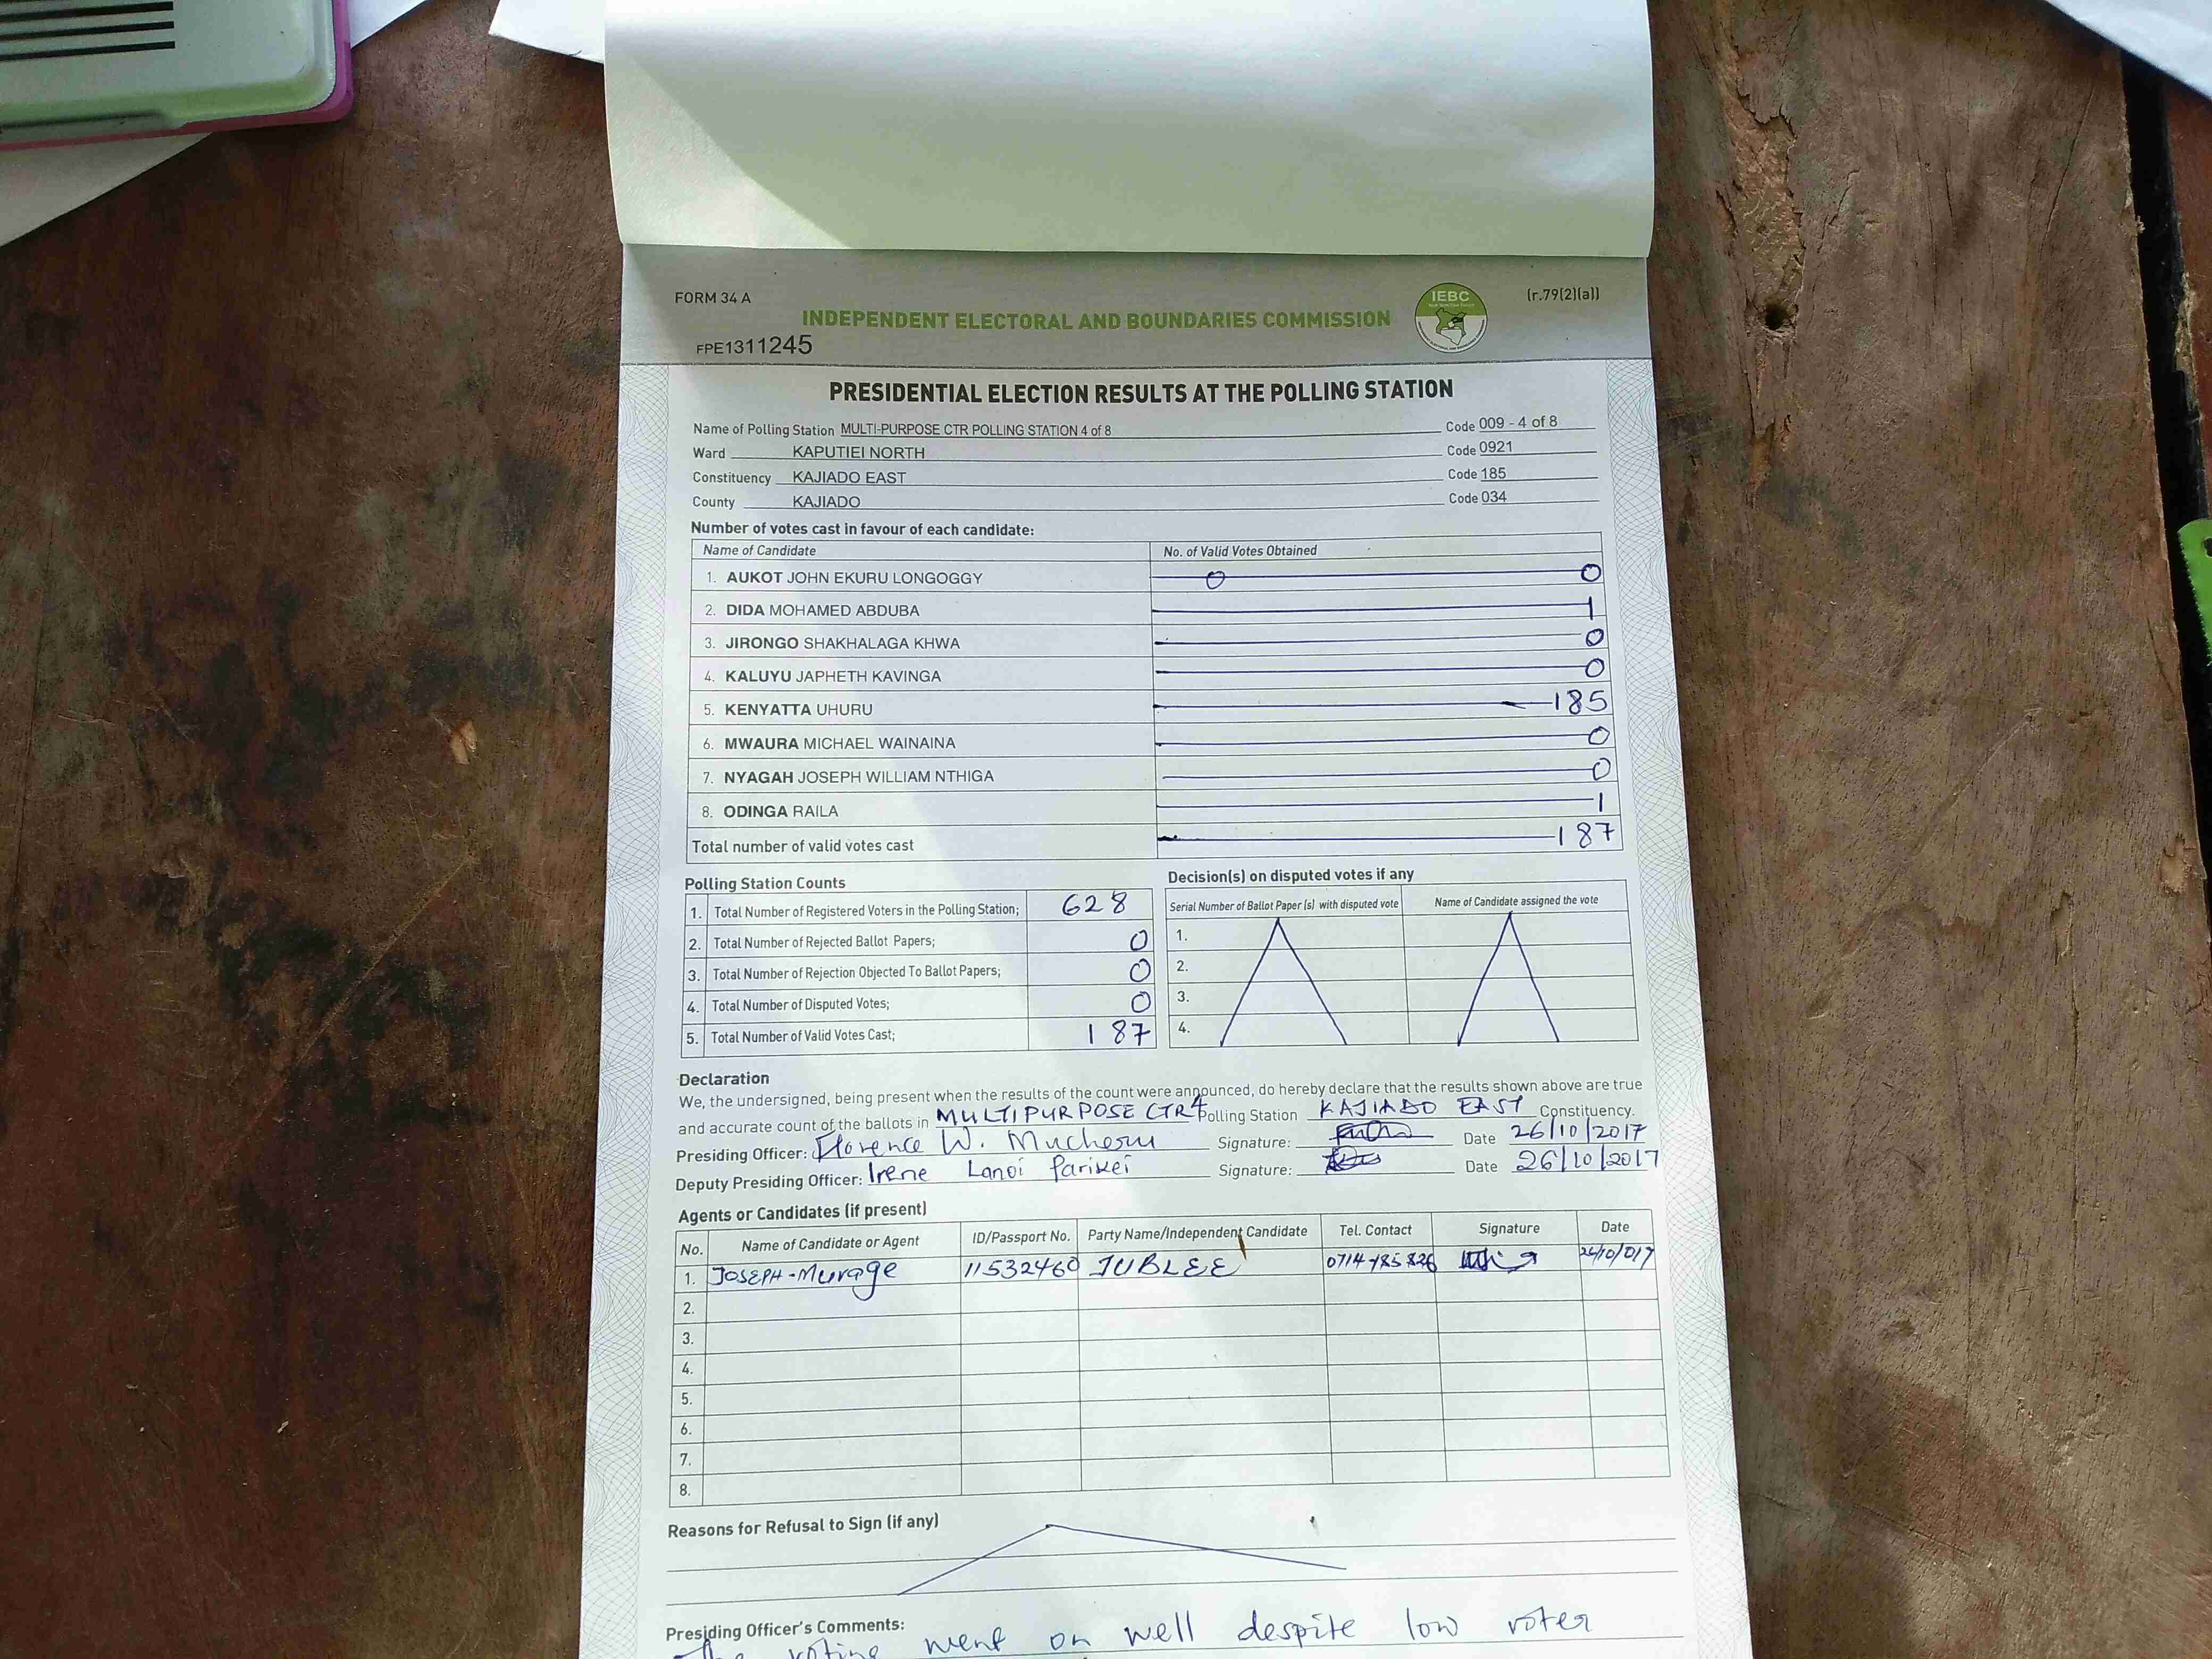 FORM 34 A
IEBC
(r.79(2)(a))
INDEPENDENT ELECTORAL AND BOUNDARIES COMMISSION
FPE1311245
PRESIDENTIAL ELECTION RESULTS AT THE POLLING STATION
Name of Polling Station MULTI-PURPOSE CTR POLLING STATION 4 of 8 Code 009 - 4 of 8
Ward KAPUTIEI NORTH Code 0921
Constituency KAJIADO EAST Code 185
County KAJIADO Code 034
Number of votes cast in favour of each candidate:
Name of Candidate No. of Valid Votes Obtained
1. AUKOT JOHN EKURU LONGOGGY 0 0
2. DIDA MOHAMED ABDUBA 1
3. JIRONGO SHAKHALAGA KHWA 0
4. KALUYU JAPHETH KAVINGA 0
5. KENYATTA UHURU 185
6. MWAURA MICHAEL WAINAINA 0
7. NYAGAH JOSEPH WILLIAM NTHIGA 0
8. ODINGA RAILA 1
Total number of valid votes cast 187
Polling Station Counts
1. Total Number of Registered Voters in the Polling Station; 628
2. Total Number of Rejected Ballot Papers; 0
3. Total Number of Rejection Objected To Ballot Papers; 0
4. Total Number of Disputed Votes; 0
5. Total Number of Valid Votes Cast; 187
Decision(s) on disputed votes if any
Serial Number of Ballot Paper (s) with disputed vote Name of Candidate assigned the vote
1.
2.
3.
4.
Declaration
We, the undersigned, being present when the results of the count were announced, do hereby declare that the results shown above are true
and accurate count of the ballots in MULTIPURPOSE CTR 4 Polling Station KAJIADO EAST Constituency.
Presiding Officer: Florence W. Mucheru Signature: Date 26/10/2017
Deputy Presiding Officer: Irene Lanoi Parikei Signature: Date 26/10/2017
Agents or Candidates (if present)
No. Name of Candidate or Agent ID/Passport No. Party Name/Independent Candidate Tel. Contact Signature Date
1. JOSEPH-Murage 11532460 JUBLEE 0714785826 26/10/017
2.
3.
4.
5.
6.
7.
8.
Reasons for Refusal to Sign (if any)
Presiding Officer's Comments:
The voting went on well despite low voter